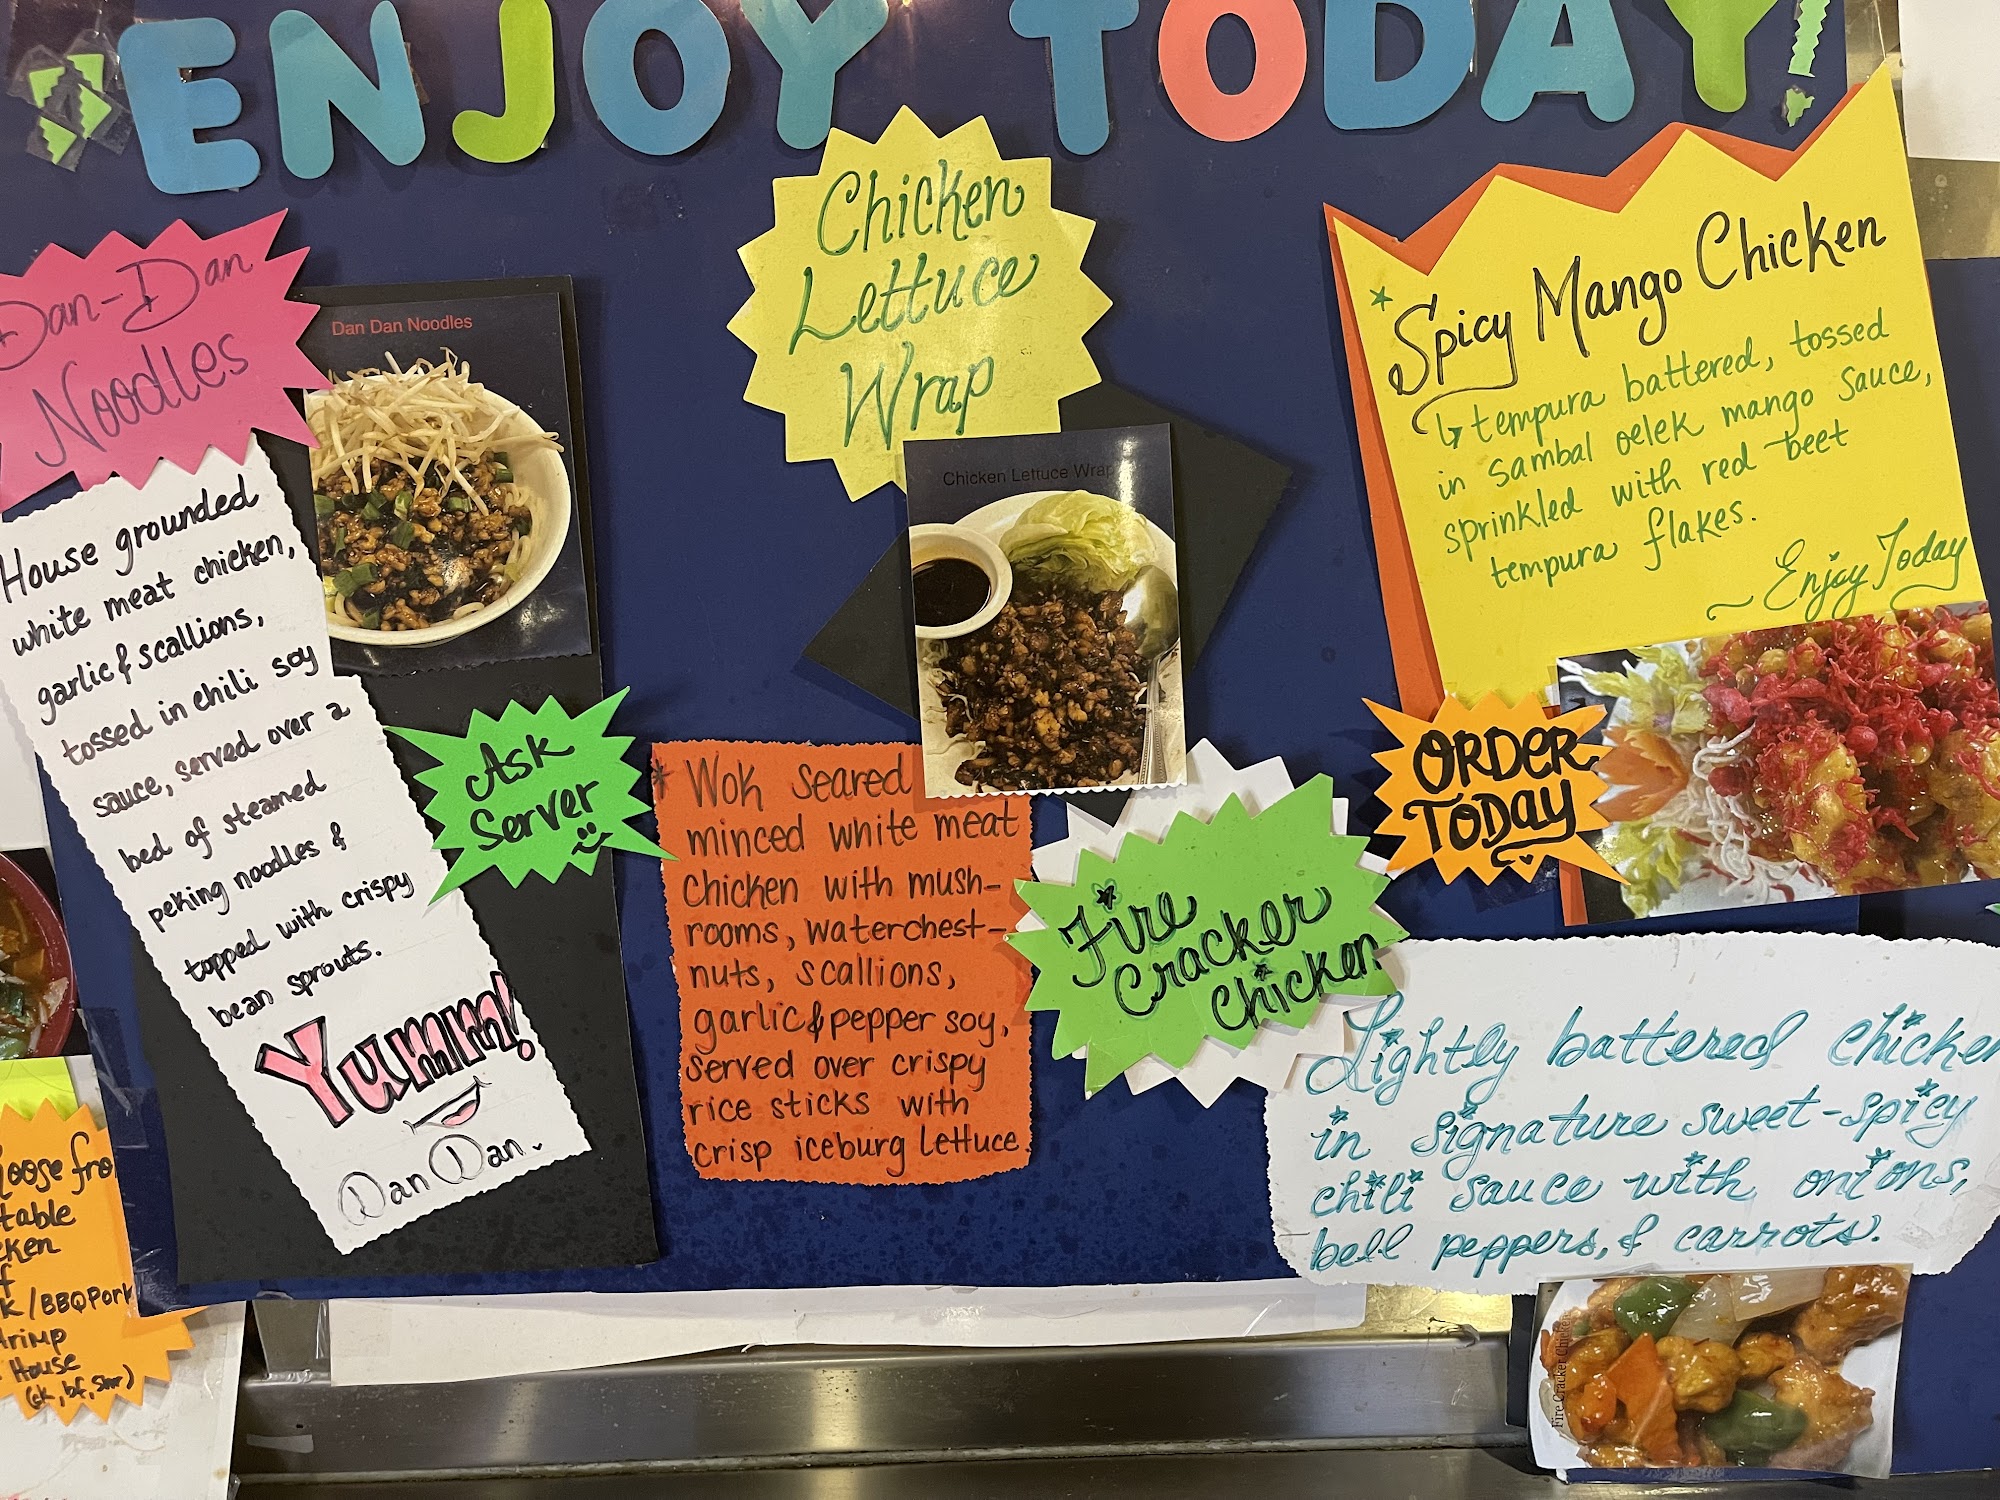 ENJOY TODAY!
Dan-Dan
Noodles
Dan Dan Noodles
House grounded
white meat chicken,
garlic & scallions,
tossed in chili soy
sauce, served over a
bed of steamed
peking noodles &
topped with crispy
bean sprouts.
Yumm!
Dan Dan.
Ask
Server
Chicken
Lettuce
Wrap
Chicken Lettuce Wrap
* Wok seared
minced white meat
chicken with mush-
rooms, waterchest-
nuts, scallions,
garlic & pepper soy,
served over crispy
rice sticks with
crisp iceburg lettuce.
Spicy Mango Chicken
↳ tempura battered, tossed
in sambal oelek mango sauce,
sprinkled with red-beet
tempura flakes.
~ Enjoy Today
ORDER
TODAY
Fire
Cracker
Chicken
Lightly battered chicken
in signature sweet-spicy
chili sauce with onions,
bell peppers, & carrots.
Fire Cracker Chicken
/BBQ Pork
House
(ck, bf, shr)